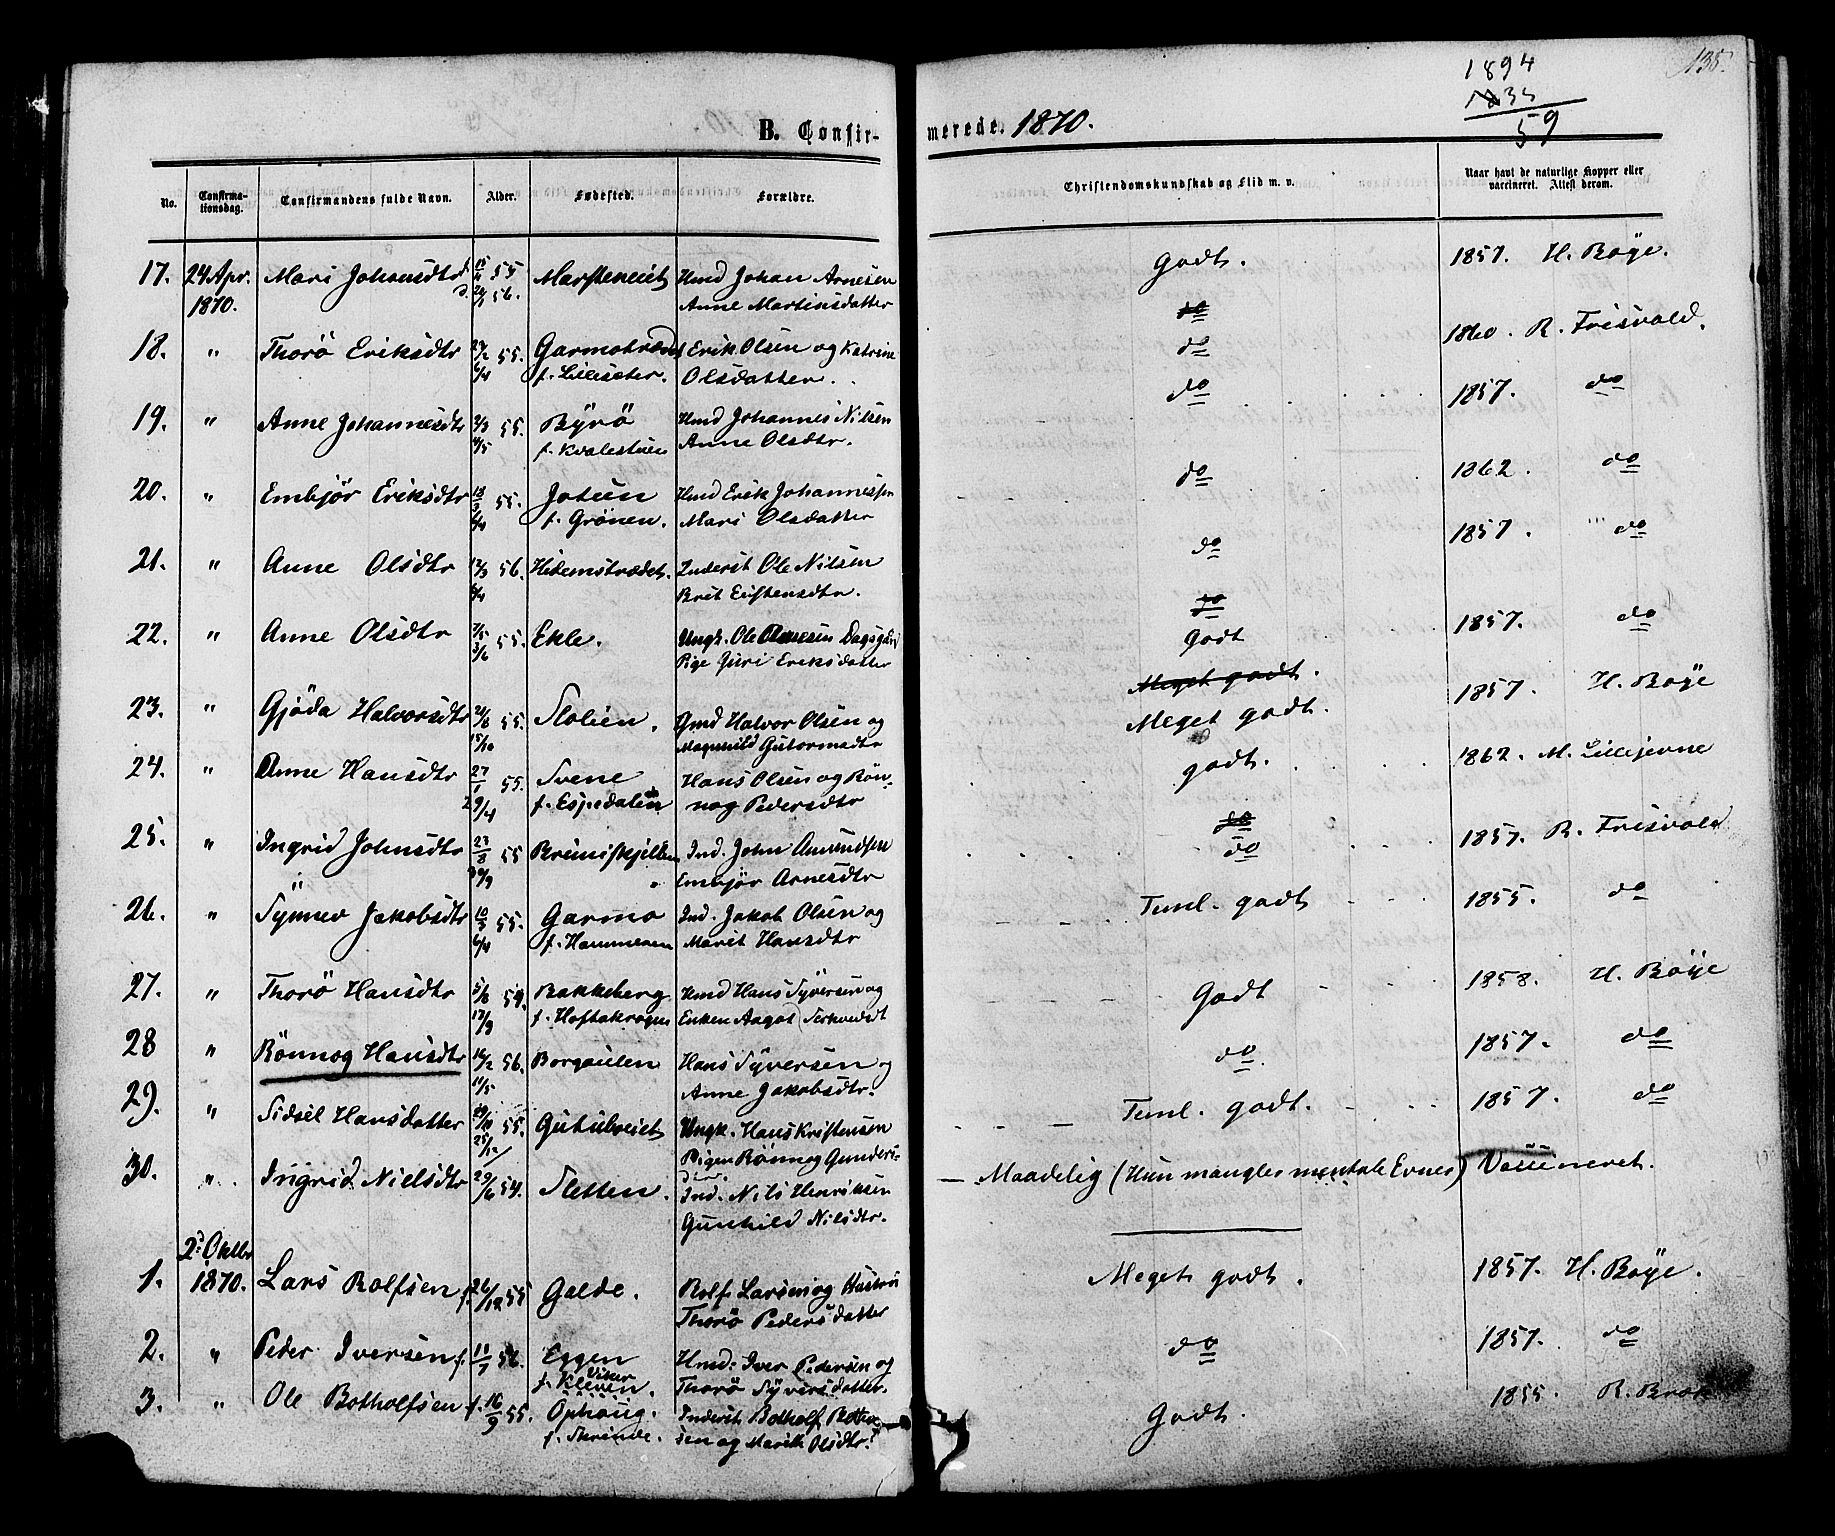 135.
1894
1835
59
B. Confir-
merede. 1870.
No.
Confirma-
tionsdag.
Confirmandens fulde Navn.
Alder.
Fødested.
Forældre.
Christendomskundskab og Flid m. v.
Naar havt de naturlige Kopper eller
vaccineret. Attest derom.
17. 24 Apr. Mari Johansdtr f. 15/4 55 Marsteneiet Hmd Johan Arnesen Godt. 1857. H. Bøye.
1870. d. 56. Anne Martinsdatter do
18. " Thorö Eriksdtr 55. Erik Olsen og Katrine do 1860. R. Frisvold.
6/4 f. Lillesæter. Olsdatter.
19. " Anne Johannesdtr 2/3 55. Byrö Hmd Johannes Nilsen do 1857. do
4/5 f. Kvalestuen Anne Olsdtr.
20. " Embjör Eriksdtr 18/3 55. Jotun Hmd Erik Johannessen do 1862. do
6/4 f. Grönen. Mari Olsdatter
21. " Anne Olsdtr 12/3 56. Hidemstrædet. Inderst Ole Nilsen do 1857. " do
6/4 Brit
22. " Anne Olsdtr 7/5 55. Ekle. Ungk. Ole do 1857. do
3/6 Pige Juri Eriksdatter Godt
23. " Gjöda Halvorsdtr 55. Gmd Halvor Olsen og Meget godt. 1857. H. Bøye
15/10 Magnhild Gutormsdtr Meget godt.
24. " Anne Hansdtr 27/1 55. Svene Hans Olsen og Rön- godt. 1862. M. Lillejevne
29/4 f. Espedalen nog Pedersdtr
25. " Ingrid Johnsdtr 23/8 55 Ind. John Amundsen do 1857. R. Frisvold
Embjör Arnesdtr do
26. " Synnev Jakobsdtr 10/3 55. Garmo Ind. Jakob Olsen og Teml. godt 1855. do
6/4 f. Hammeren Marit Hansdtr
27. " Thorö Hansdtr 5/8 54. Bakkeberg Hmd Hans Syversen og Godt 1858. H. Bøye
17/9 f. Hoftakrogen Enken Aagot
28 " Rönnog Hansdtr 16/2 56. Borgaulen Hans Syversen og do 1857. do
11/5 Anne Jakobsdtr.
29. " Sidsel Hansdatter 55. Gutulveiet Ungk. Hans Kristensen Teml. godt. 1857. do
25/12 Pigen Rönnog Gunderi-
30. " Ingrid Nielsdtr 29/6 54. Sletten. Ind. Nils Henriksen Maadelig (Hun mangler mentale Evner) Vassineret.
Gunhild Nilsdtr.
2d Oktbr
1. 1870. Lars Rolfsen f. 26/12 55 Galde. Rolf Larsen og Hustru Meget godt. 1857. H. Bøye.
Thorö Pedersdatter
2. " Peder Iversen f. 11/7 56. Eggen Hmd: Iver Pedersen og do 1857. do
f. Kleven. Thorö Syversdatter.
3. " Ole Botholfsen f. 16/9 55. Ophaug. Inderst Botholf Godt. 1855.
sen og Marit Olsdtr.